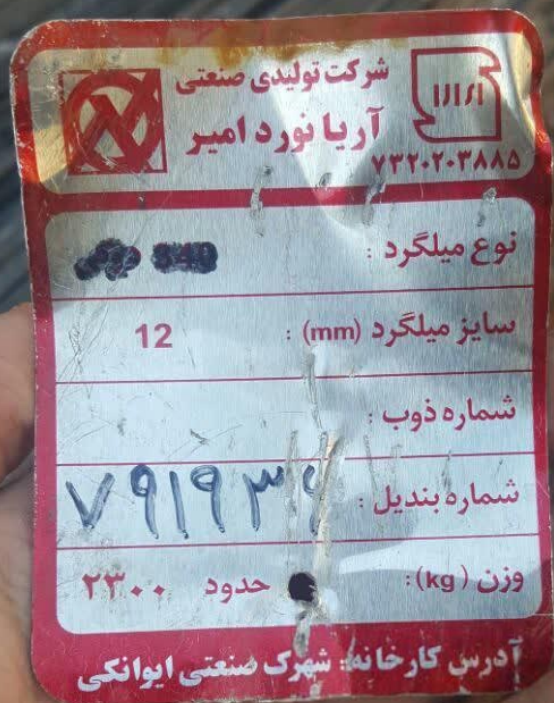 شرکت تولیدی صنعتی
آریا نورد امیر
۷۳۲۰۲۰۳۸۸۵
نوع میلگرد :
سایز میلگرد (mm) : 12
شماره ذوب :
شماره بندیل :
وزن (kg): حدود ۲۳۰۰
آدرس کارخانه: شهرک صنعتی ایوانکی